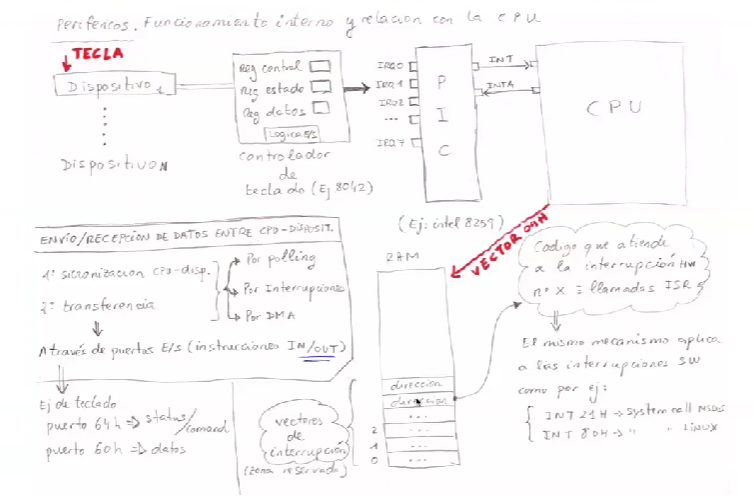 Periféricos. Funcionamiento interno y relación con la CPU
TECLA
Dispositivo 1
Dispositivo N
Reg control
Reg estado
Reg datos
Logica E/S
controlador
de
teclado (Ej 8042)
IRQ0
IRQ1
IRQ2
...
IRQ7
P
I
C
INT
INTA
CPU
(Ej: intel 8259)
VECTOR 09H
ENVÍO/RECEPCIÓN DE DATOS ENTRE CPU-DISPOSIT.
1º sicronización CPU-disp.
2º transferencia
Por polling
Por Interrupciones
Por DMA
A través de puertos E/S (instrucciones IN/OUT)
Ej de teclado
puerto 64h => status/comand
puerto 60h => datos
vectores
de
interrupción
(zona reservada)
RAM
direccion
direccion
...
...
2
1
0
Codigo que atiende
a la interrupción HW
nº X = llamadas ISR
El mismo mecanismo aplica
a las interrupciones SW
como por ej:
INT 21H -> System call MSDOS
INT 80H -> " " LINUX